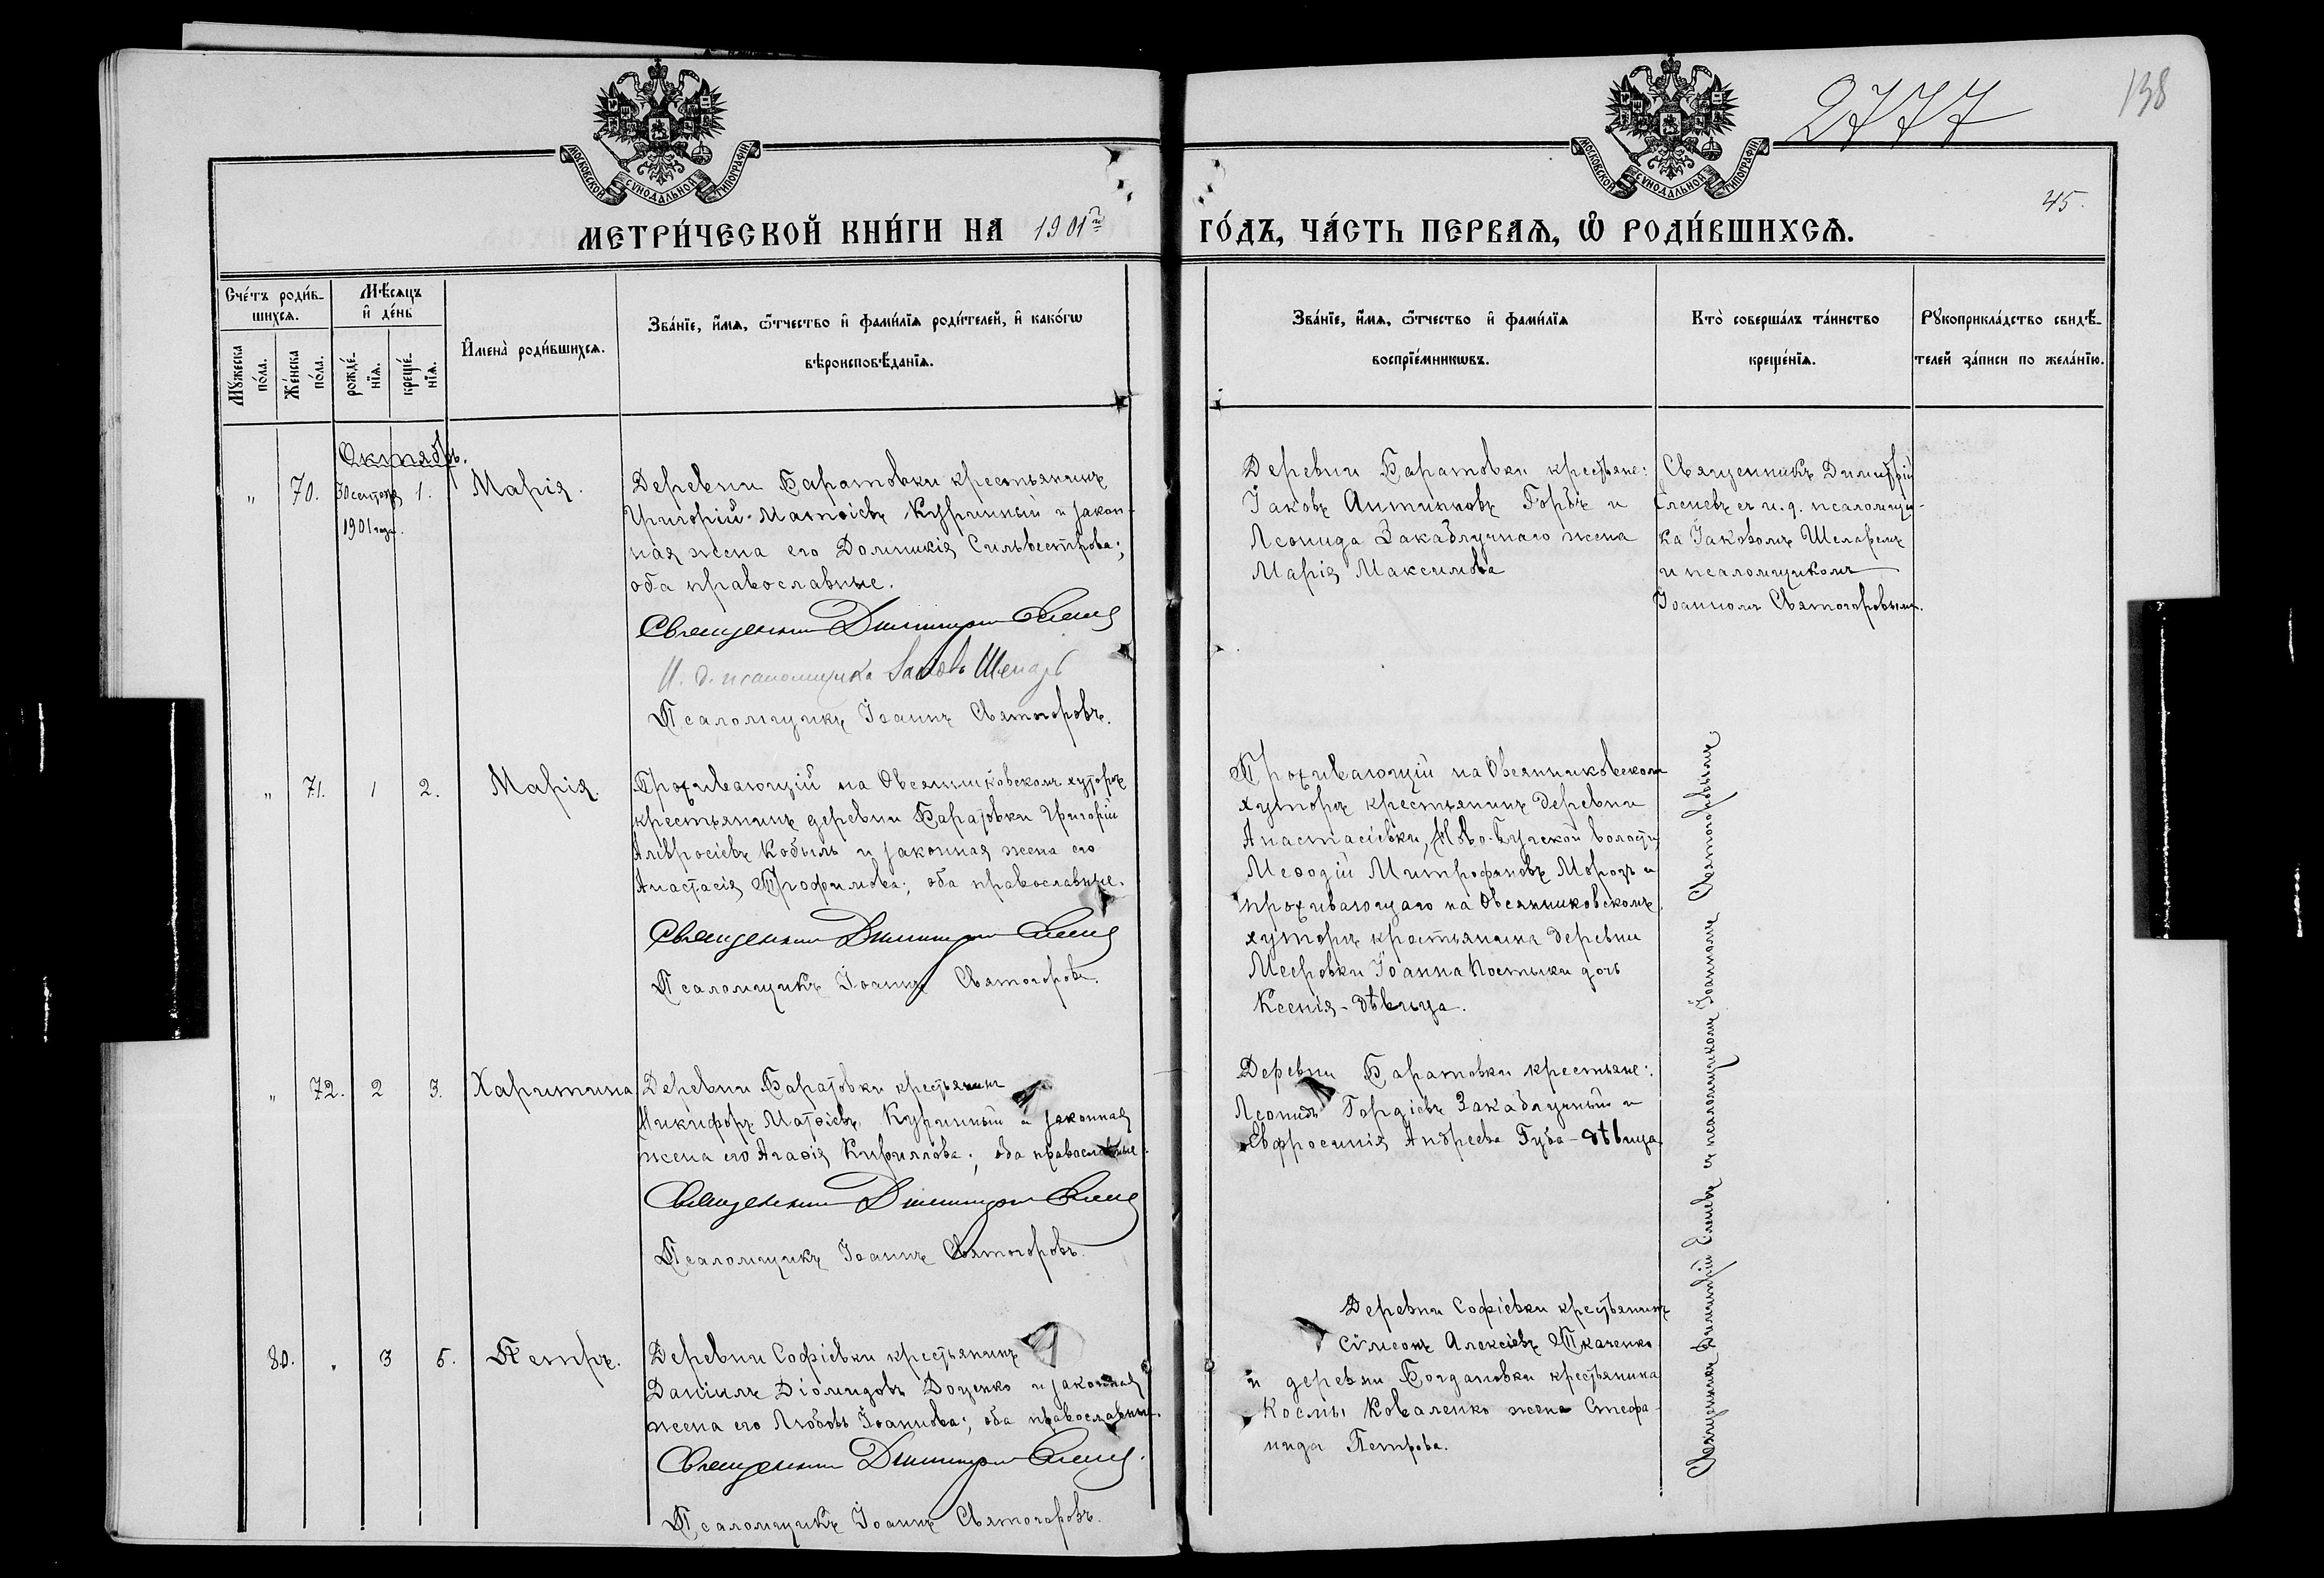 2777
138
МОСКОВСКОЙ СѴНОДАЛЬНОЙ ТИПОГРАФІИ
МОСКОВСКОЙ СѴНОДАЛЬНОЙ ТИПОГРАФІИ
45.
МЕТРИ́ЧЕСКОЙ КНИ́ГИ НА 1901й ГО́ДЪ, ЧА́СТЬ ПЕРВАѦ, Ѡ҆ РОДИ́ВШИХСѦ.
Сче́тъ роди́в-
шихсѧ.
Мꙋ́жеска по́ла.
Же́нска по́ла.
Мѣ́сѧцъ
и҆ де́нь
рожде́-
нїѧ.
креще́-
нїѧ.
И҆мена̀ роди́вшихсѧ.
Зва́нїе, и҆́мѧ, ѻ҆́тчество и҆ фами́лїѧ роди́телей, и҆ како́гѡ
вѣроисповѣ́данїѧ.
Зва́нїе, и҆́мѧ, ѻ҆́тчество и҆ фами́лїѧ
воспрїе́мникѡвъ.
Кто̀ соверша́лъ та́инство
креще́нїѧ.
Рꙋкоприкла́дство свидѣ́-
телей за́писи по жела́нїю.
Октябрь.
" 70. 30 сентября 1901 года. 1. Марія.
Деревни Баратовки крестьянинъ
Григорій Матѳіевъ Куринный и закон-
ная жена его Домникія Сильвестрова;
оба православные.
Священникъ Димитрій Еленевъ
И. д. псаломщика Іаковъ Шепарь
Псаломщикъ Іоаннъ Святогоровъ.
Деревни Баратовки крестьяне:
Іаковъ Антиповъ Горбъ и
Леонида Закаблучнаго жена
Марія Максимова
Священникъ Димитрій
Еленевъ съ и. д. псаломщи-
ка Іаковомъ Шепаремъ
и псаломщикомъ
Іоанномъ Святогоровымъ.
" 71. 1 2. Марія.
Проживающій на Овсянниковскомъ хуторѣ
крестьянинъ деревни Баратовки Григорій
Амвросіевъ Кобыль и законная жена его
Анастасія Трофимова; оба православные.
Священникъ Димитрій Еленевъ
Псаломщикъ Іоаннъ Святогоровъ.
Проживающій на Овсянниковскомъ
хуторѣ крестьянинъ деревни
Анастасіевки, Ново-Бугской волости
Меѳодій Митрофановъ Морозъ и
проживающаго на Овсянниковскомъ
хуторѣ крестьянина деревни
Мефровки Іоанна Костыки дочь
Ксенія - дѣвица.
" 72. 2 3. Харитина
Деревни Баратовки крестьянинъ
Никифоръ Матѳіевъ Куринный и законная
жена его Агаѳія Кириллова; оба православные.
Священникъ Димитрій Еленевъ
Псаломщикъ Іоаннъ Святогоровъ.
Деревни Баратовки крестьяне:
Леонидъ Гордіевъ Закаблучный и
Евфросинія Андреева Губа - дѣвица.
80. " 3 5. Петръ.
Деревни Софіевки крестьянинъ
Даніилъ Діомидовъ Доценко и законная
жена его Любовь Іоаннова; оба православные.
Священникъ Димитрій Еленевъ.
Псаломщикъ Іоаннъ Святогоровъ.
Деревни Софіевки крестьянинъ
Сѵмеонъ Алексіевъ Ткаченко
и деревни Богдановки крестьянина
Космы Коваленко жена Стефа-
нида Петрова.
Священникъ Димитрій Еленевъ съ псаломщикомъ Іоанномъ Святогоровымъ.